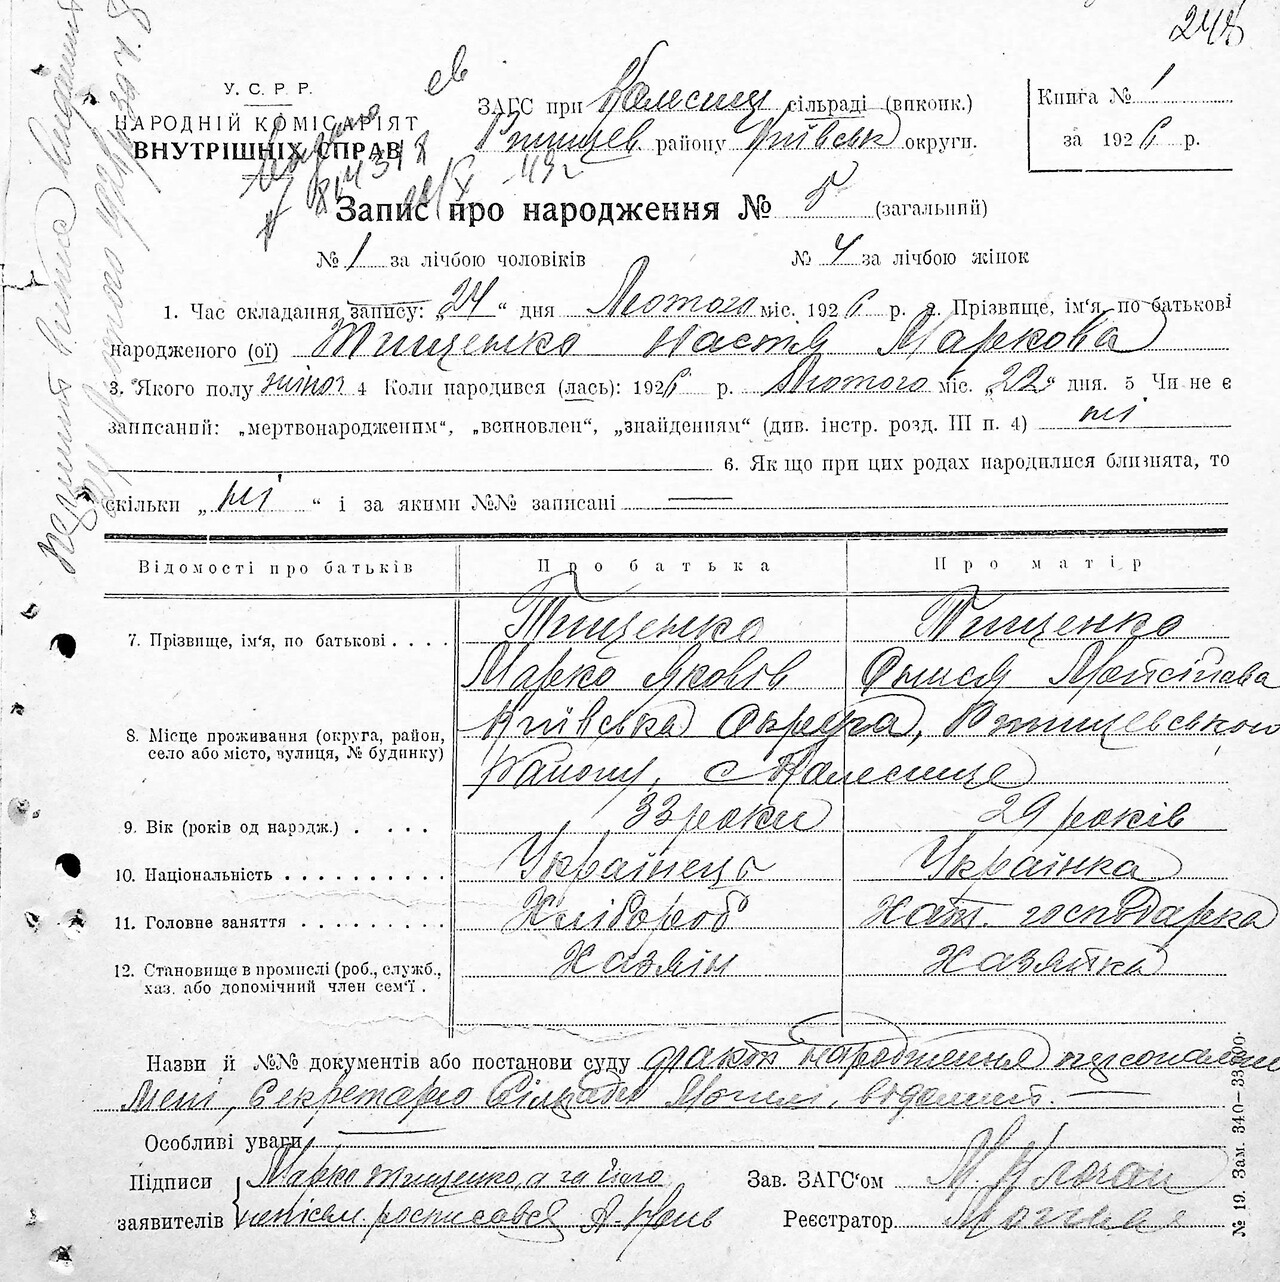 248
У. С. Р. Р.
НАРОДНІЙ КОМІСАРІЯТ
ВНУТРІШНІХ СПРАВ
ЗАГС при сільраді (виконк.)
району Київськ округи.
Книга № 1
за 1926 р.
Запис про народження № 5 (загальний)
№ 1 за лічбою чоловіків № 4 за лічбою жінок
1. Час складання запису: „24“ дня Лютого міс. 1926 р. 2. Прізвище, ім'я, по батькові
народженого (ої) Тищенко Настя Маркова
3. Якого полу жіноч 4 Коли народився (лась): 1926 р. Лютого міс. „22“ дня. 5 Чи не є
записаний: „мертвонародженим“, „всиновлен“, „знайденням“ (див. інстр. розд. III п. 4) ні
6. Якщо при цих родах народилися близнята, то
скільки „ні“ і за якими №№ записані —
Відомості про батьків Про батька Про матір
7. Прізвище, ім'я, по батькові . . . . Тищенко Тищенко
Марко Яковів
8. Місце проживання (округа, район, село або місто, вулиця, № будинку) Київська Округа, Ртищевського
Району, с
9. Вік (років од народж.) . . . . 33 роки 29 років
10. Національність . . . . . . . . . . Українець Українка
11. Головне заняття . . . . . . . . . Хлібороб Хат. господарка
12. Становище в промислі (роб., служб., хаз. або допомічний член сем'ї . Хазяїн Хазяйка
Назви й №№ документів або постанови суду факт народження персонально
мені, Секретарю Сільради
Особливі уваги —
Підписи Марко Тищенко, а за його
заявителів неписьм. росписався
Зав. ЗАГС'ом
Реєстратор
№ 19. Зам. 340—33